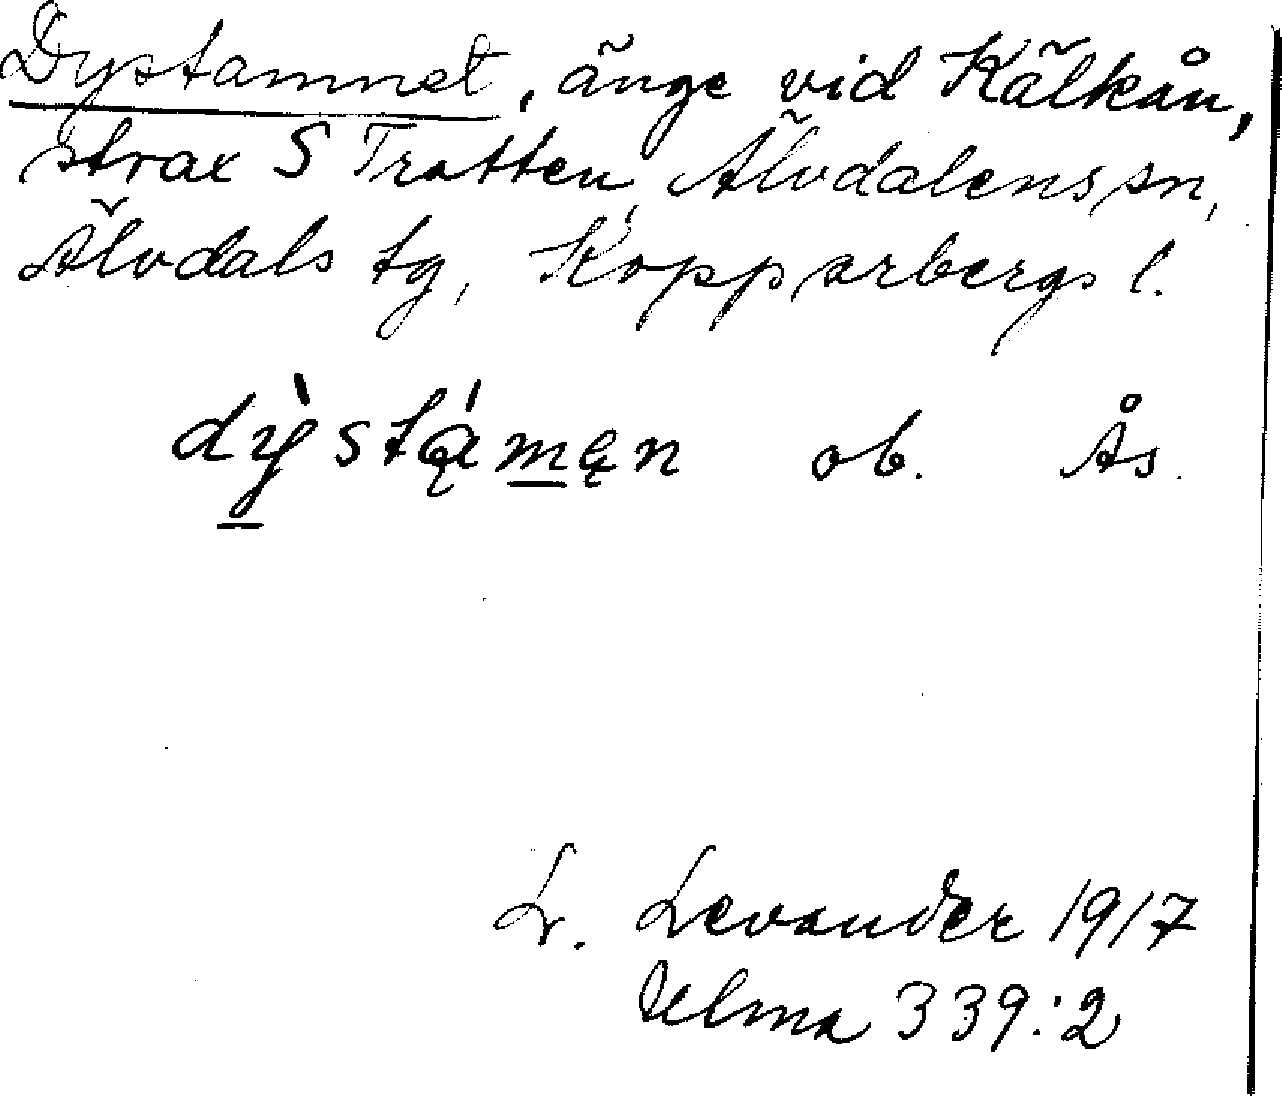 Dystamnet, änge vid Kälkån,
strax S Trotten, Älvdalens sn,
Älvdals tg, Kopparbergs l.
dỳstą́męn ob. Ås.
L. Levander 1917
Ulma 339:2